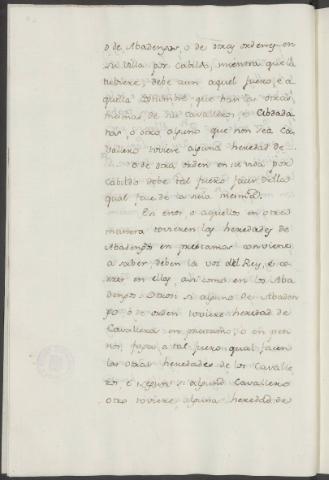 o de Abadengos, o de otras ordenes en
su villa por cabildo, mientra que la
tubiere, debe aun aquel fuero, e a
quella costumbre que han las otras
mismas, de los cavalleros, o Cibdada
nos, o otro alguno que non sea ca
vallero toviere alguna heredad de
o de otra orden en su vida por
cabildo debe tal fuero faser della
qual fue de la seña misma.
En esto, o aquellos en otra
manera tovieren las heredades de
Abadengos en prestamos conviene
a saber, deben la voz del Rey, e co
rrer en ellos, asi como en los Aba
dengos. Otrosi si alguno de Abaden
go o de orden toviere heredad de
Cavalleria en prestamo, o en pen
nos, faga a tal fuero qual facen
las otras heredades de los Cavalle
ros e si alguno Cavallero
otro toviere alguna heredad de